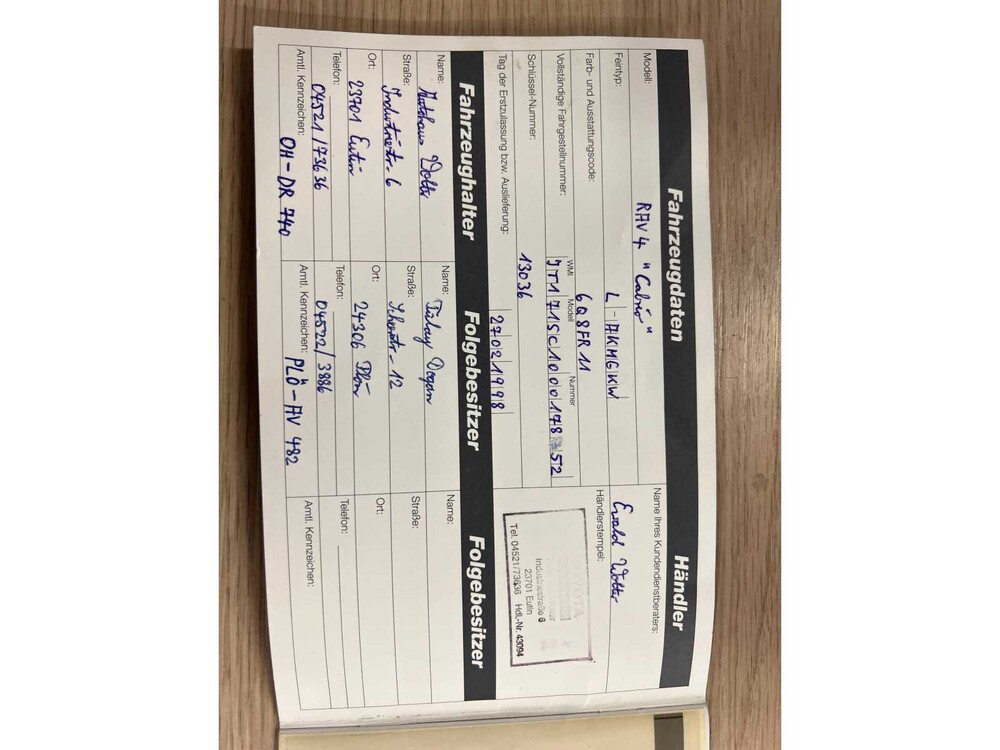 Fahrzeugdaten
Modell: RAV4 "Cabrio"
Feintyp: L-AKMGKW
Farb- und Ausstattungscode: 6Q8FR11
WMI Modell Nummer
Vollständige Fahrgestellnummer: JT171SC1000178752
Schlüssel-Nummer: 13036
Tag der Erstzulassung bzw. Auslieferung: 27021998
Händler
Name Ihres Kundendienstberaters:
Ewald Wolter
Händlerstempel:
TOYOTA
Industriestraße 6
23701 Eutin
Tel. 04521/73636 Hdl.-Nr. 43094
Fahrzeughalter
Name: Autohaus Wolter
Straße: Industriestr. 6
Ort: 23701 Eutin
Telefon: 04521/73636
Amtl. Kennzeichen: OH-DR 740
Folgebesitzer
Name: Tülay Dogan
Straße: 12
Ort: 24306 Plön
Telefon: 04522/3886
Amtl. Kennzeichen: PLÖ-AV 482
Folgebesitzer
Name:
Straße:
Ort:
Telefon:
Amtl. Kennzeichen: